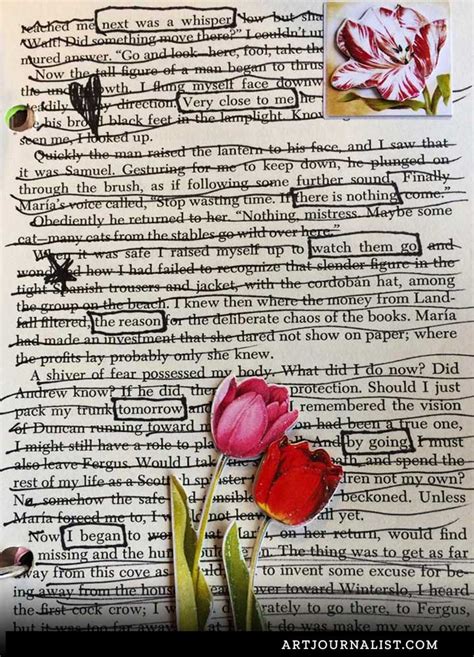 reached me next was a whisper, low but sha
Wait! Did something move there?" I couldn't un
mured answer. "Go and look here, fool, take the
Now the tall figure of a man began to thrus
the growth. I flung myself face down
eadily my direction. Very close to me he
his broad black feet in the lamplight. Know
seen me, I looked up.
Quickly the man raised the lantern to his face, and I saw that
it was Samuel. Gesturing for me to keep down, he plunged on
through the brush, as if following some further sound. Finally
María's voice called, "Stop wasting time. If there is nothing come."
Obediently he returned to her. "Nothing, mistress. Maybe some
cat—many cats from the stables go wild over here."
When it was safe I raised myself up to watch them go and
how I had failed to recognize that slender figure in the
tight Spanish trousers and jacket, with the cordobán hat, among
the group on the beach. I knew then where the money from Land-
fall filtered, the reason for the deliberate chaos of the books. María
had made an investment that she dared not show on paper; where
the profits lay probably only she knew.
A shiver of fear possessed my body. What did I do now? Did
Andrew know? If he did, the protection. Should I just
pack my trunk tomorrow I remembered the vision
of Duncan running toward had been a true one,
I might still have a role to And by going I must
also leave Fergus. Would I and spend the
rest of my life as a Scottish not my own?
No, somehow the safe beckoned. Unless
María forced me to, I all yet.
Now I began to on her return, would find
missing and the The thing was to get as far
away from this cove as to invent some excuse for be-
ing away from the house toward Winterslo, I heard
the first cock crow; I to go there, to Fergus,
but it was too far do was make my way over
ARTJOURNALIST.COM